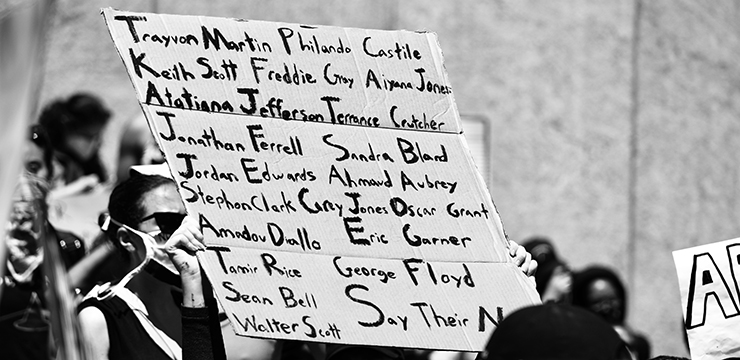 Trayvon Martin Philando Castile
Keith Scott Freddie Gray Aiyana Jones
Atatiana Jefferson Terrance Crutcher
Jonathan Ferrell Sandra Bland
Jordan Edwards Ahmaud Aubrey
Stephon Clark Corey Jones Oscar Grant
Amadou Diallo Eric Garner
Tamir Rice George Floyd
Sean Bell Say Their N
Walter Scott